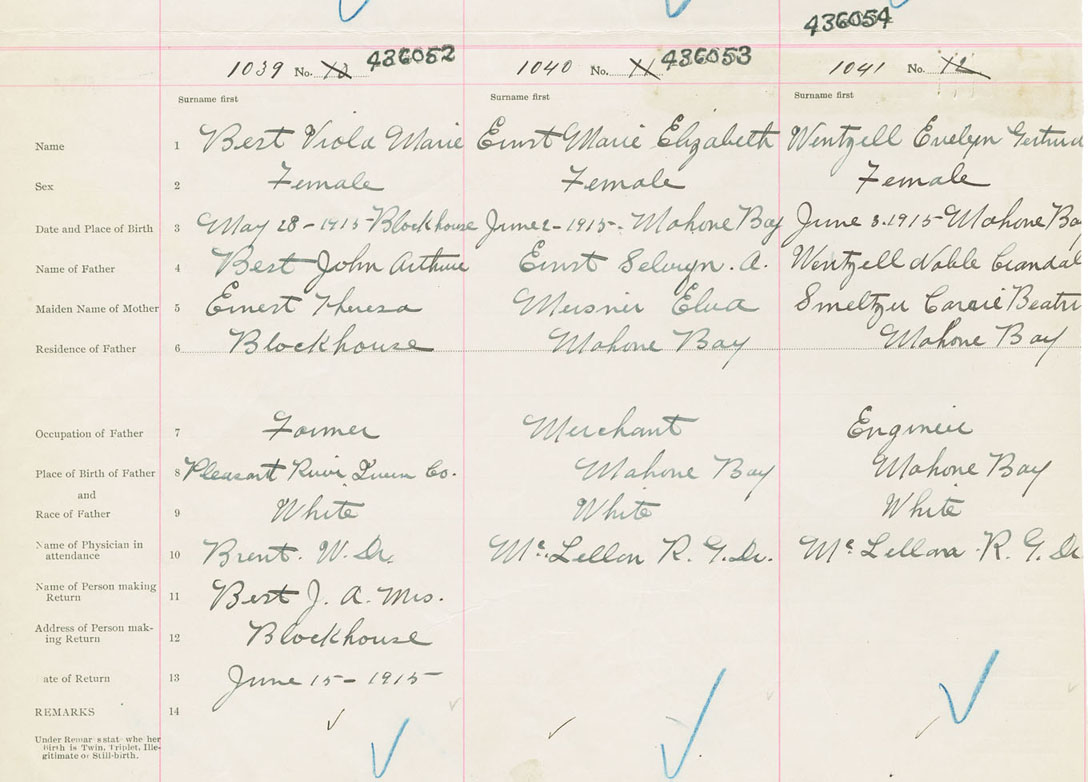 436054
1039 No. 12 436052 1040 No. 11 436053 1041 No. 12
Surname first Surname first Surname first
Name 1 Best Viola Marie Ernst Marie Elizabeth Wentzell Evelyn Gertrud
Sex 2 Female Female Female
Date and Place of Birth 3 May 28 - 1915 - Blockhouse June 2 - 1915 - Mahone Bay June 3. 1915 - Mahone Bay
Name of Father 4 Best John Arthur Ernst Selwyn. A. Wentzell Noble Crandal
Maiden Name of Mother 5 Ernest Theresa Meisner Elva Smeltzer Carrie Beatri
Residence of Father 6 Blockhouse Mahone Bay Mahone Bay
Occupation of Father 7 Farmer Merchant Engineer
Place of Birth of Father 8 Pleasant River Queen Co. Mahone Bay Mahone Bay
and
Race of Father 9 White White White
Name of Physician in
attendance 10 Brent. W. Dr. Mc. Lellan R. G. Dr. Mc. Lellan R. G. Dr
Name of Person making
Return 11 Best J. A. Mrs.
Address of Person mak-
ing Return 12 Blockhouse
ate of Return 13 June 15 - 1915
REMARKS 14
Under Remarks state whe her
Birth is Twin, Triplet, Ille-
gitimate or Still-birth.